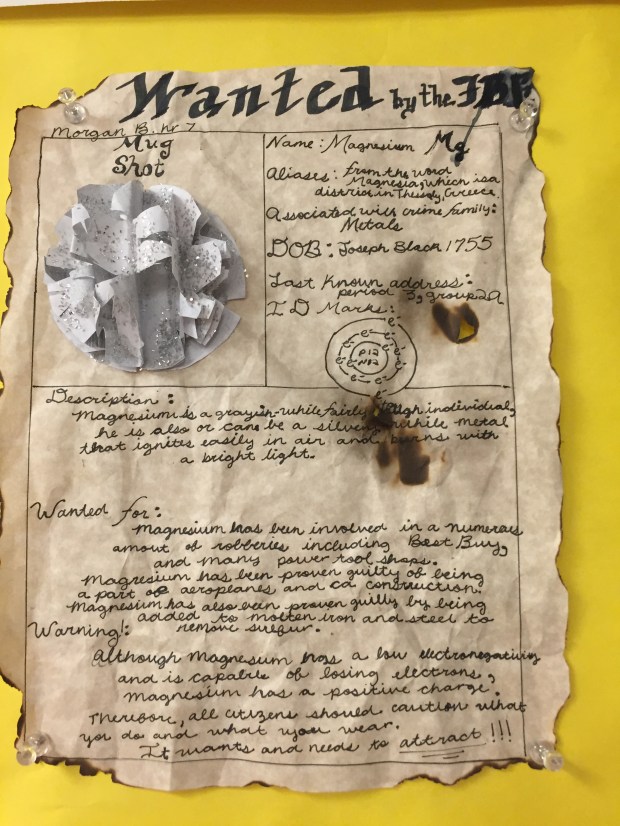 Wanted by the FBI
Morgan B. hr 7
Mug
Shot
Name: Magnesium Mg
Aliases: from the word
Magnesia, which is a
district in Thessly, Greece.
Associated with crime family:
Metals
DOB: Joseph Black 1755
Last Known address:
period 3, group 2A
ID Marks:
e- e- e- e- e- e- e- e- e- e- e- e-
12 P
12 N
Description:
Magnesium is a grayish-white fairly tough individual,
he is also or cane be a silvery-white metal
that ignites easily in air and burns with
a bright light.
Wanted for:
Magnesium has been involved in a numerous
amout of robberies including Best Buy,
and many power tool shops.
Magnesium has been proven guilty of being
a part of aeroplanes and ca construction.
Magnesium has also been proven guilty by being
added to molten iron and steel to
remove sulfur.
Warning!:
Although Magnesium has a low electronegativity
and is capable of losing electrons,
Magnesium has a positive charge.
Therefore, all citizens should caution what
you do and what you wear.
It wants and needs to attract!!!